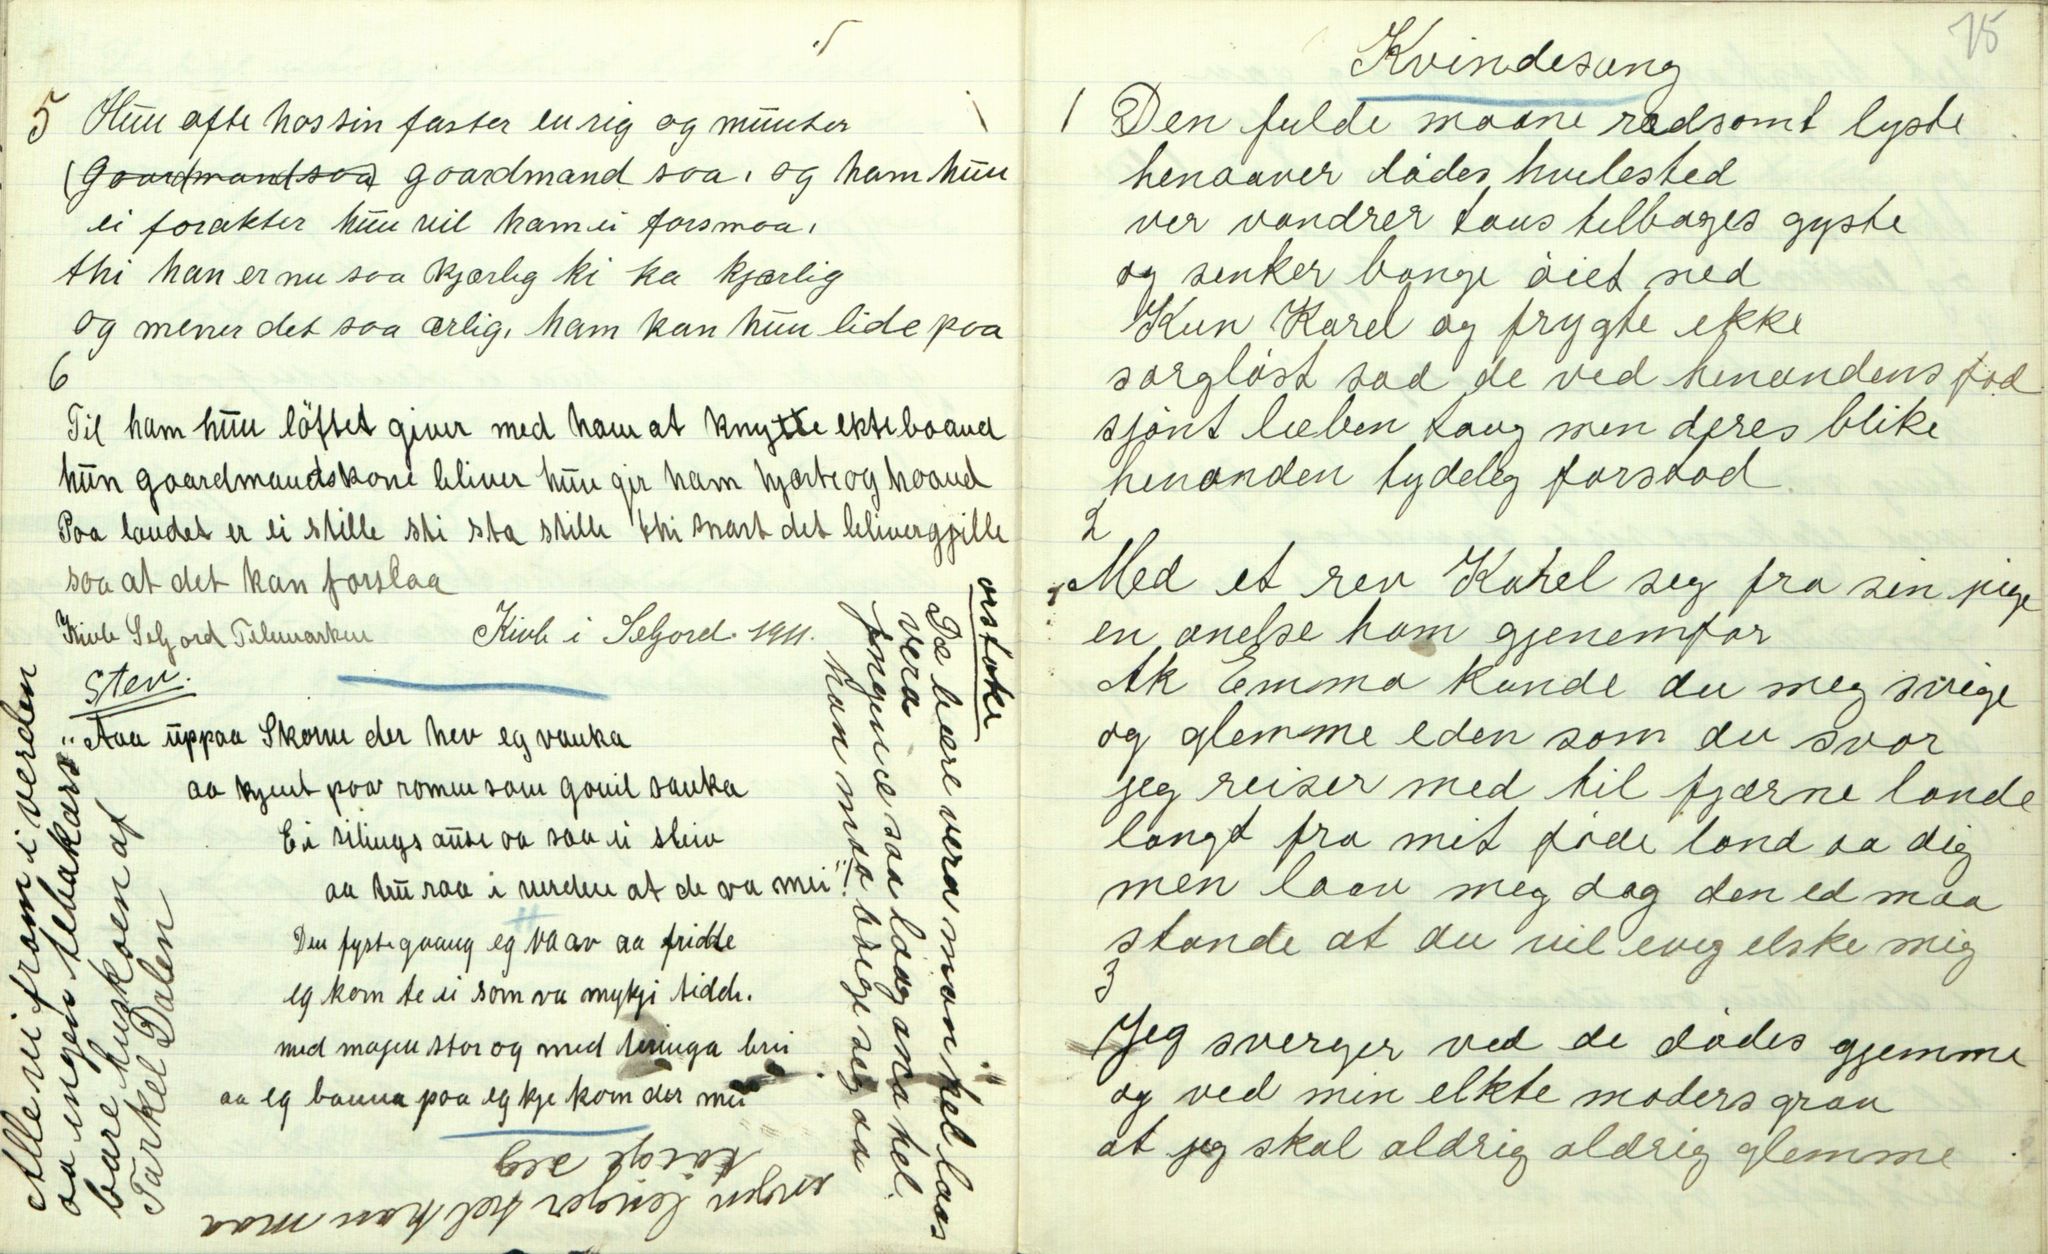 5 Hun ofte hos sin faster en rig og munter
(goardmand soa) goardmand soa, og ham hun
ei forakter hun vil ham ei forsmoa,
thi han er nu soa kjærlig ki ka kjærlig
og mener det soa ærlig, ham kan hun lide poa
6
Til ham hun löftet giver med ham at knytte ekteboand
hun goardmandskone bliver hun gir ham hjærte og hoand
Poa landet er ei stille sti sta stille thi snart det bliver gjille
soa at det kan forslaa
Kivle Seljord Telemarken Kivle i Seljord. 1911.
Stev.
"Aaa uppaa Skorve der hev eg vanka
aa kjent paa romen som gauil sanka
Ei silings aust aa saa ei sleiv
aa tru raa i verden at de va mei"!
Den fyste goang eg va av aa fridde
eg kom te ei som va mykji tidd.
med magen stor og med bringa brei
aa eg banna poa eg kje kom der mei
Alle vi fram i verden
aa ingen tebakars
bare huskoen af
Tarkel Dalen
orstøke
De bære vera man hel laas
vera
fingene saa laag ana hel.
han maa börge seg aa
sorgen lenger hel han maa
börge seg
75
Kvindesang
1 Den fulde maane rædsomt lyste
henoaver dödes hvilested
ver vandrer taus tilbages gyste
og senker bange öiet ned
Kun Karel og frygte ikke
sorglöst sad de ved henandens fod
sjönt læben taug men deres blike
henanden tydeleg forstod
2
Med et rev Karel seg fra sin pige
en anelse ham gjenemfor
Ak Emma kunde du meg svige
og glemme eden som du svor
jeg reiser med til fjærne lande
langt fra mit föde land aa dig
men laav meg dog den ed maa
stande at du vil eveg elske mig
3
Jeg sverger ved de dödes gjemme
og ved min elkte moders grav
at jeg skal aldrig aldrig glemme